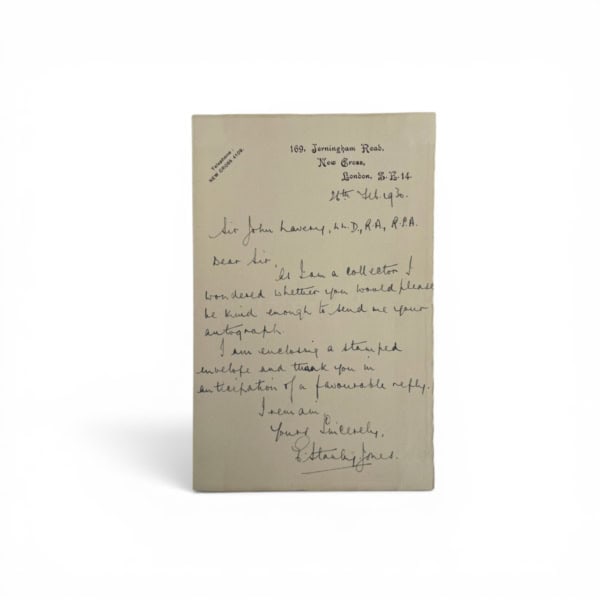 Telephone
NEW CROSS 4109.
169, Jerningham Road,
New Cross,
London, S.E.14.
26th Feb. 1930.
Sir John Lavery, LL.D, R.A, R.P.A.
Dear Sir,
As I am a collector I
wondered whether you would please
be kind enough to send me your
autograph.
I am enclosing a stamped
envelope and thank you in
anticipation of a favourable reply.
I remain,
Yours Sincerely,
Stanley Jones.